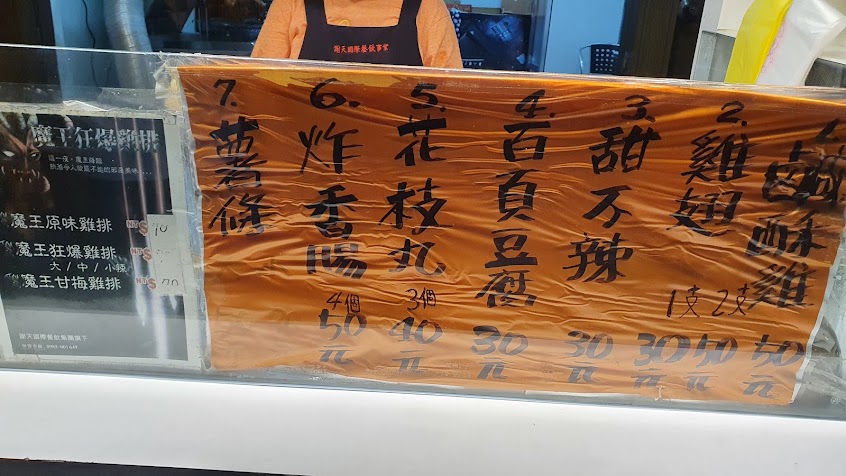 謝天國際餐飲事業
1. 鹹酥雞 50元
2. 雞翅 1支 30元 2支 50元
3. 甜不辣 30元
4. 百頁豆腐 30元
5. 花枝丸 3個 40元
6. 炸香腸 4個 50元
7. 薯條
魔王狂爆雞排
這一夜，魔王降臨
魔王原味雞排 NT$ 70
魔王狂爆雞排 NT$
大/中/小辣
魔王甘梅雞排 NT$ 70
謝天國際餐飲集團旗下